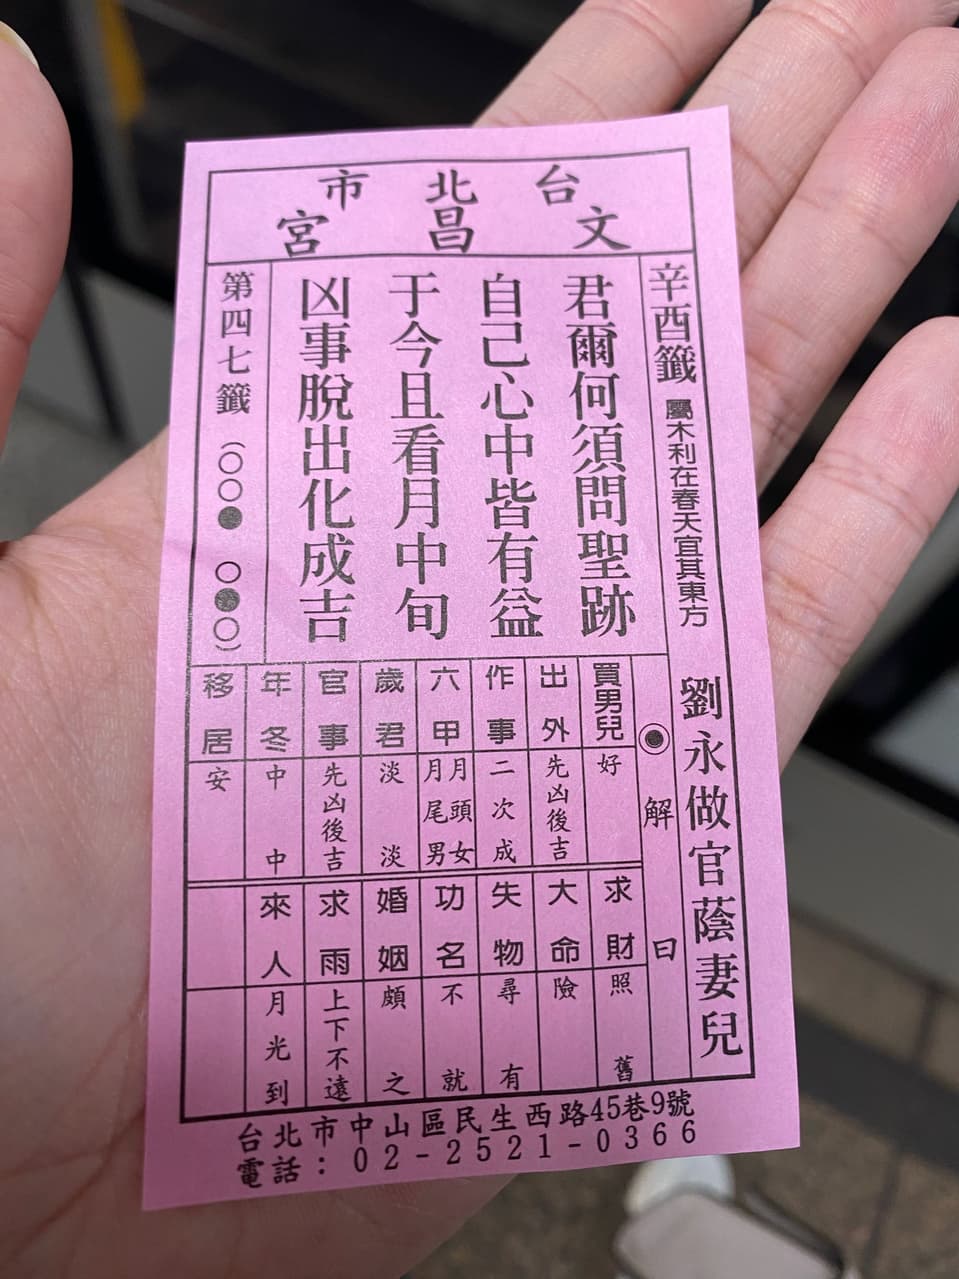 台北市
文昌宮
辛酉籤 屬木利在春天宜其東方 劉永做官蔭妻兒
君爾何須問聖跡
自己心中皆有益
于今且看月中旬
凶事脫出化成吉
第四七籤(○○○● ○●○)
◉解曰
買男兒 好
出外 先凶後吉
作事 二次成
六甲 月頭女月尾男
歲君 淡淡
官事 先凶後吉
年冬 中中
移居 安
求財 照舊
大命 險
失物 尋有
功名 不就
婚姻 頗之
求雨 上下不遠
來人 月光到
台北市中山區民生西路45巷9號
電話:02-2521-0366